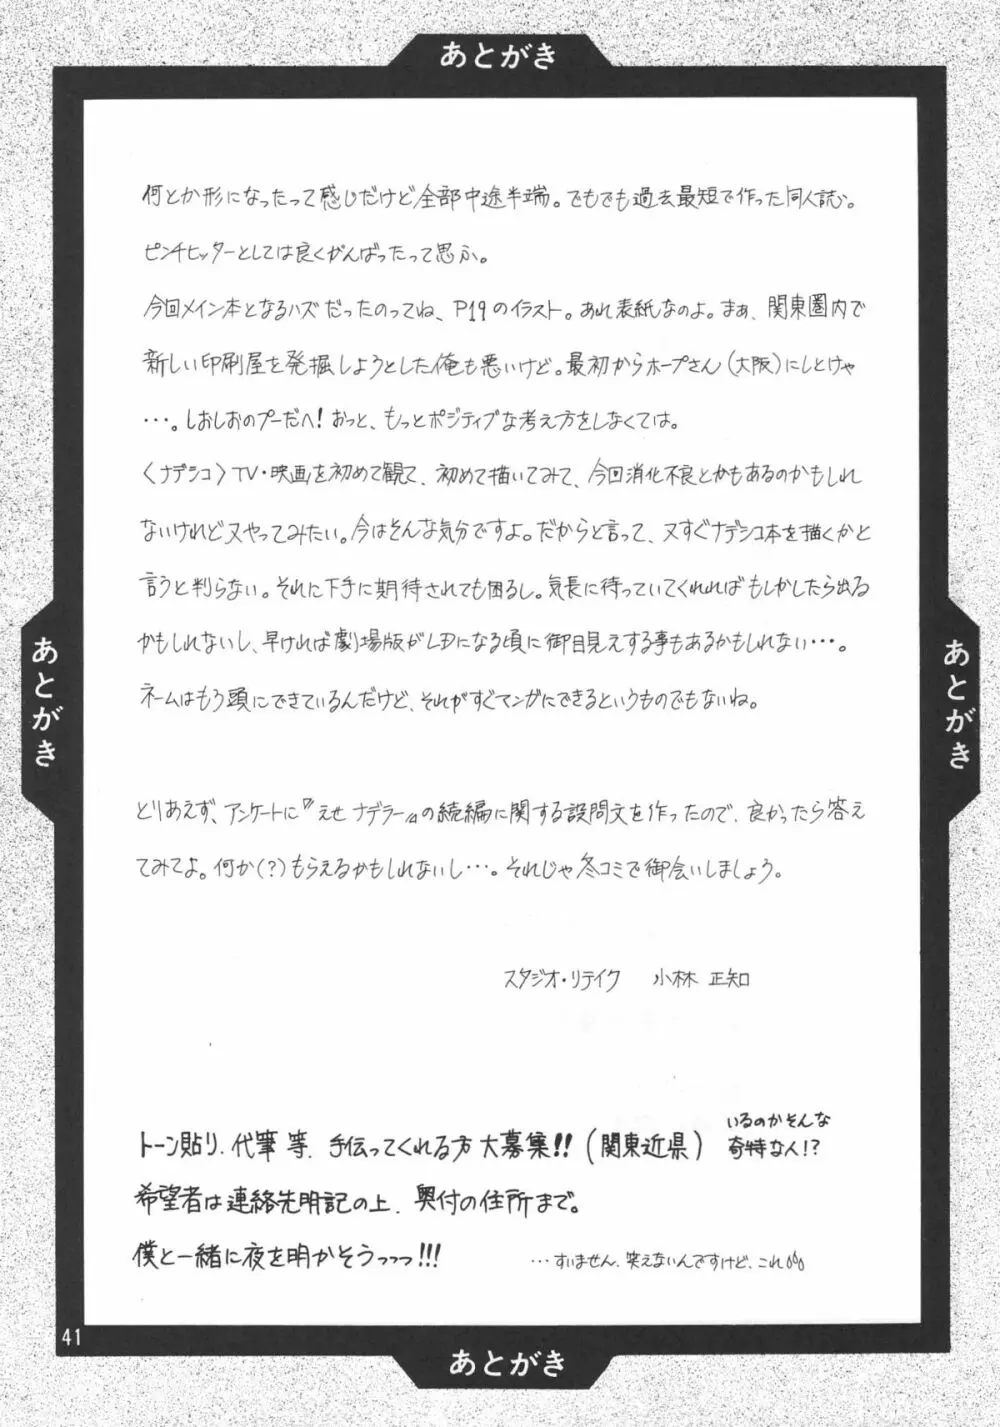 あとがき
何とか形になったって感じだけど全部中途半端。でもでも過去最短で作った同人誌。
ピンチヒッターとしては良くがんばったって思ふ。
今回メイン本となるハズだったのってね、P19のイラスト。あれ表紙なのよ。まぁ、関東圏内で
新しい印刷屋を発掘しようとした俺も悪いけど。最初からホープさん(大阪)にしとけゃ
…。しおしおのプーだへ!おっと、もっとポジティブな考え方をしなくては。
〈ナデシコ〉TV・映画を初めて観て、初めて描いてみて、今回消化不良とかもあるのかもしれ
ないけれど又やってみたい。今はそんな気分ですよ。だからと言って、又すぐナデシコ本を描くかと
言うと判らない。それに下手に期待されても困るし。気長に待っていてくれればもしかしたら出る
かもしれないし、早ければ劇場版がLDになる頃に御目見えする事もあるかもしれない…。
ネームはもう頭にできているんだけど、それがすぐマンガにできるというものでもないね。
とりあえず、アンケートに『えせナデラー』の続編に関する設問文を作ったので、良かったら答え
てみてよ。何か(?)もらえるかもしれないし…。それじゃ冬コミで御会いしましょう。
スタジオ・リテイク 小林 正知
トーン貼り、代筆 等、手伝ってくれる方 大募集!!(関東近県)
いるのかそんな
奇特な人!?
希望者は連絡先明記の上、奥付の住所まで。
僕と一緒に夜を明かそうっっっ!!!
…すいません、笑えないんですけど、これ
41
あとがき
あとがき
あとがき